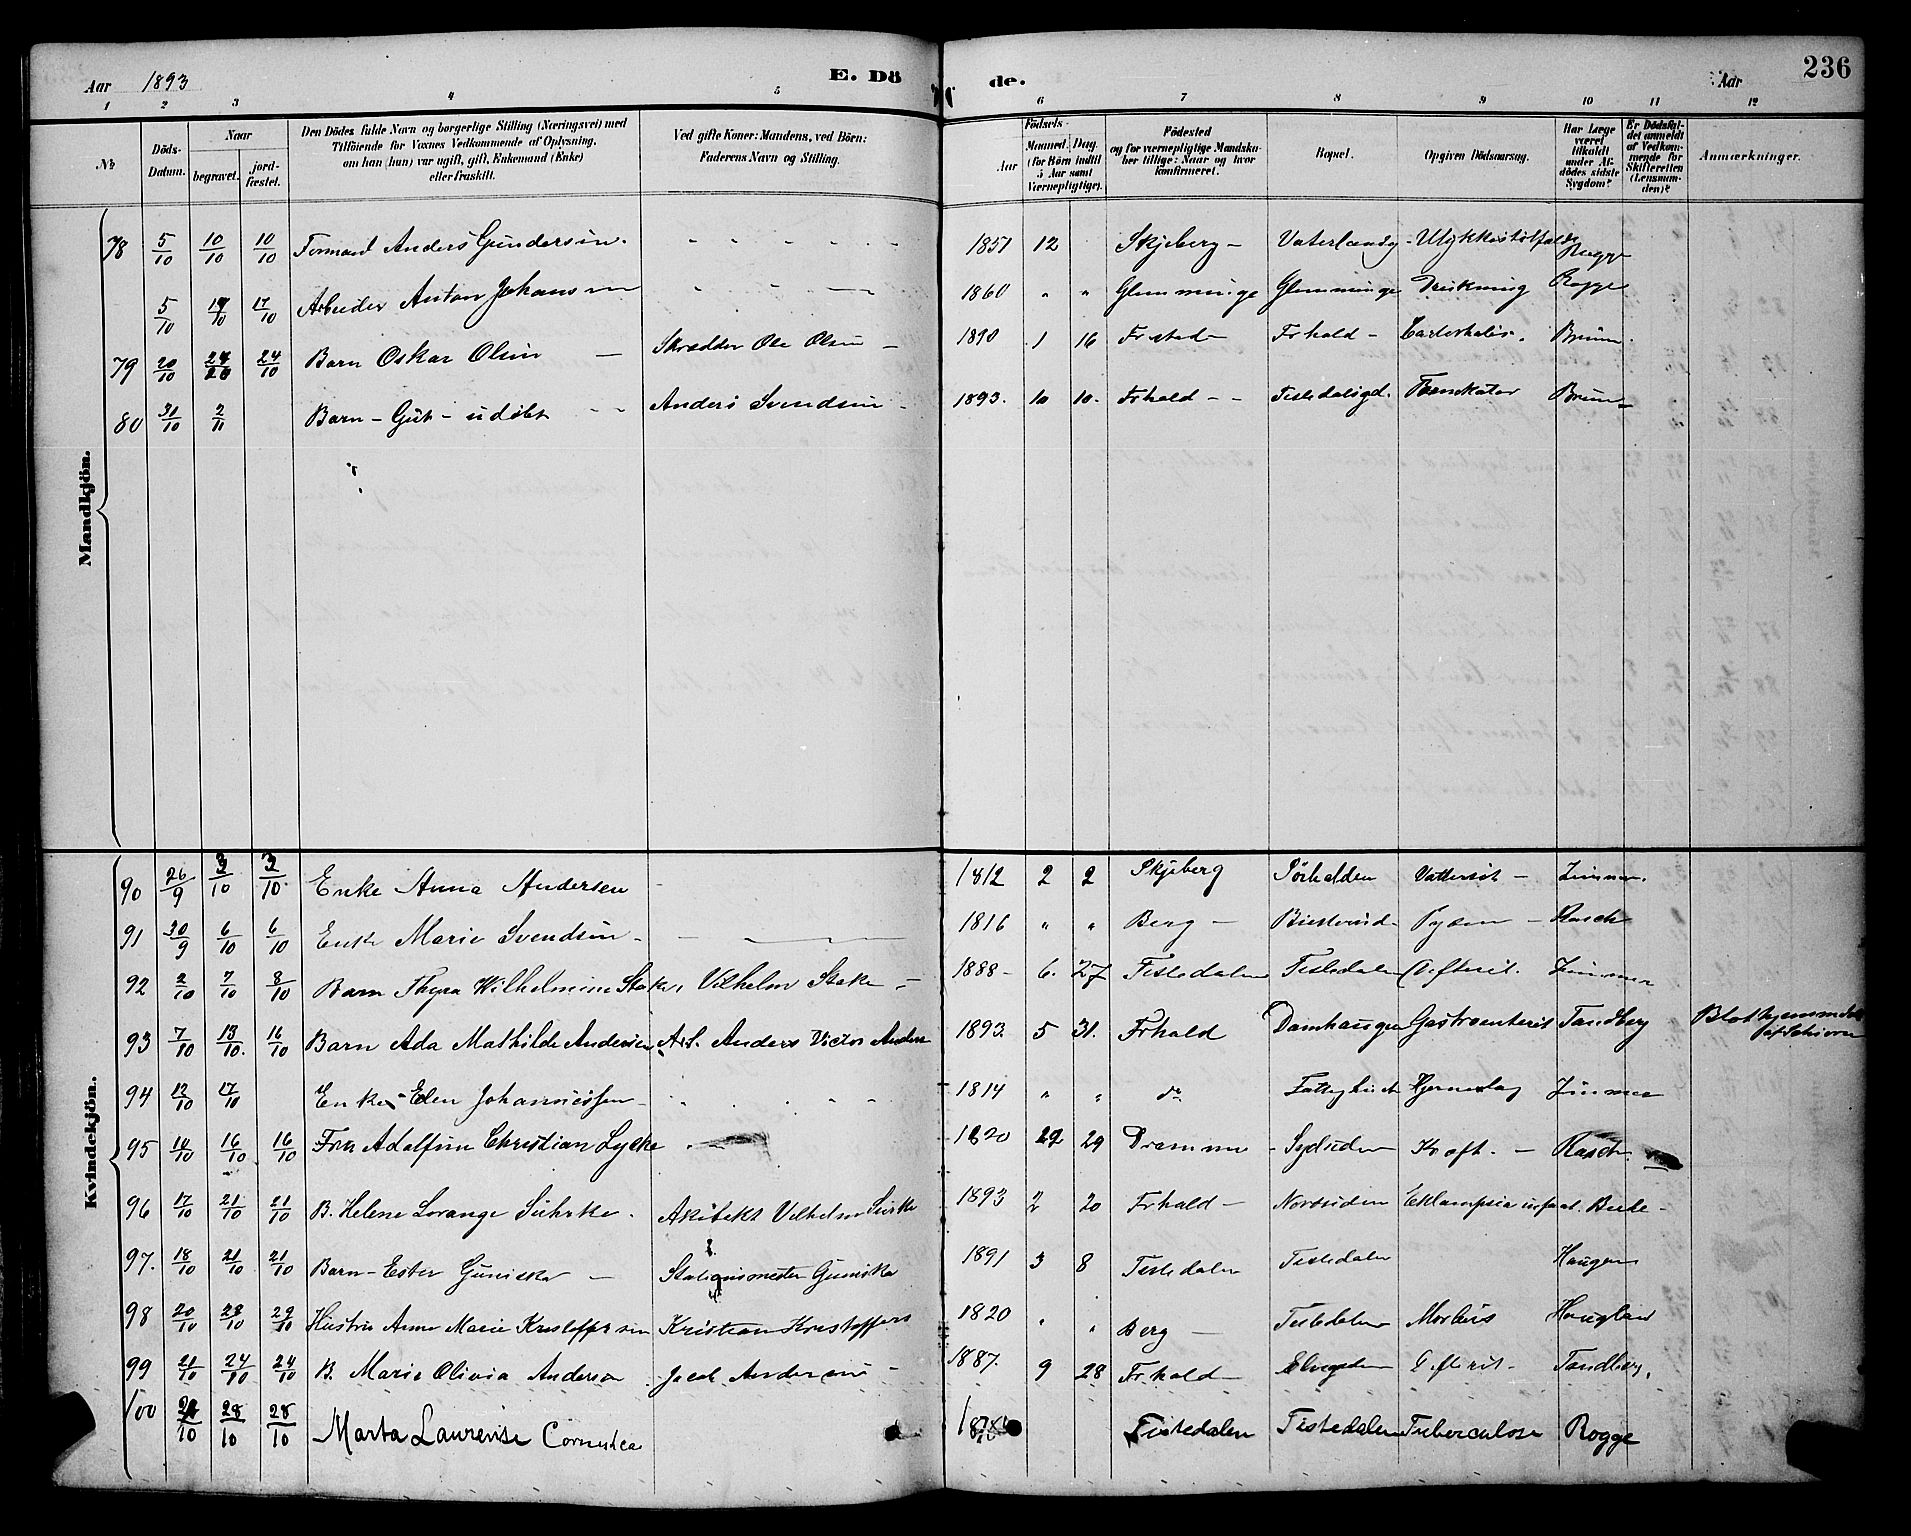 Aar 1893 E. Dö de. Aar 236
1 2 3 4 5 6 7 8 9 10 11 12
No
Döds-Datum.
Naar
begravet.
jord-fæstet.
Den Dödes fulde Navn og borgerlige Stilling (Næringsvei) med
Tilföiende for Voxnes Vedkommende af Oplysning,
om han (hun) var ugift, gift, Enkemand (Enke)
eller fraskilt.
Ved gifte Koner: Mandens, ved Börn:
Faderens Navn og Stilling.
Födsels-
Aar
Maaned, Dag
(for Börn indtil
5 Aar samt
Værnepligtige).
Födested
og for værnepligtige Mandska-
ber tillige: Naar og hvor
konfirmeret.
Bopæl.
Opgiven Dödsaarsag.
Har Læge
været
tilkaldt
under Af-
dödes sidste
Sygdom?
Er Dödsfal-
det anmeldt
af Vedkom-
mende for
Skifteretten
(Lensman-
den)?
Anmærkninger.
Mandkjön.
78 5/10 10/10 10/10 Anders Gundersen. 1851 12 Skjeberg - Ulykkestilfælde Rogge
5/10 17/10 Arbeider Anton Johansen 1860 " " Glemminge Glemminge Drukning Rogge
79 20/10 24/10 Barn Oskar Olsen - Skrædder Ole Olsen - 1890 1 16 Frhald - Bruun.
80 31/10 2/11 Barn - Gut - udöbt - - Anders Svendsen - 1893. 10 10. Frhald - - Bruun
Kvindekjön.
90 26/9 3/10 3/10. Enke Anna Andersen - 1812 2 2 Skjeberg Vattersot - Zimmer.
91 30/9 6/10 6/10 Enke Marie Svendsen - 1816 " " Berg - Rasch
92 2/10 7/10 8/10 Barn Thyra Wilhelmine Stake, Vilhelm Stake - 1888 - 6. 27 Tistedalen Tistedalen Difterit. Zimmer
93 7/10 13/10. 16/10 Barn Ada Mathilde Andersen Arb. Anders Victor Anders 1893 5 31. Frhald Damhaugen Gastroenterit Tandberg
94 12/10 17/10 Enke Elen Johannessen - 1814 " " do Fattighuset Hjerneslag Zimmer
95 14/10 16/10 16/10 Fru Adolfine Christian Lycke 1820 29 Drammen - Sydsiden Kræft. - Rasch
96 17/10 21/10 21/10 B. Helene Lorange Suhrke. Akitekt Vilhelm Surke 1893 2 20 Frhald - Nordsiden Eklampsia infant.
97. 18/10 21/10 21/10 Barn - Ester - Stationsmester 1891 3 8 Tistedalen Tistedalen Haugen
98 20/10 28/10 29/10 Hustru Anne Marie Kristoffersen Kristian Kristoffers 1820 " " Berg - Tistedalen Morbus Haugland
99 21/10 24/10 24/10 B. Marie Olivia Andersen Jacob Andersen - 1887. 9 28 Frhald - Difterit - Tandberg.
100 28/10 28/10 Marta Laurense Tistedalen Tistedalen Tuberculose Rogge